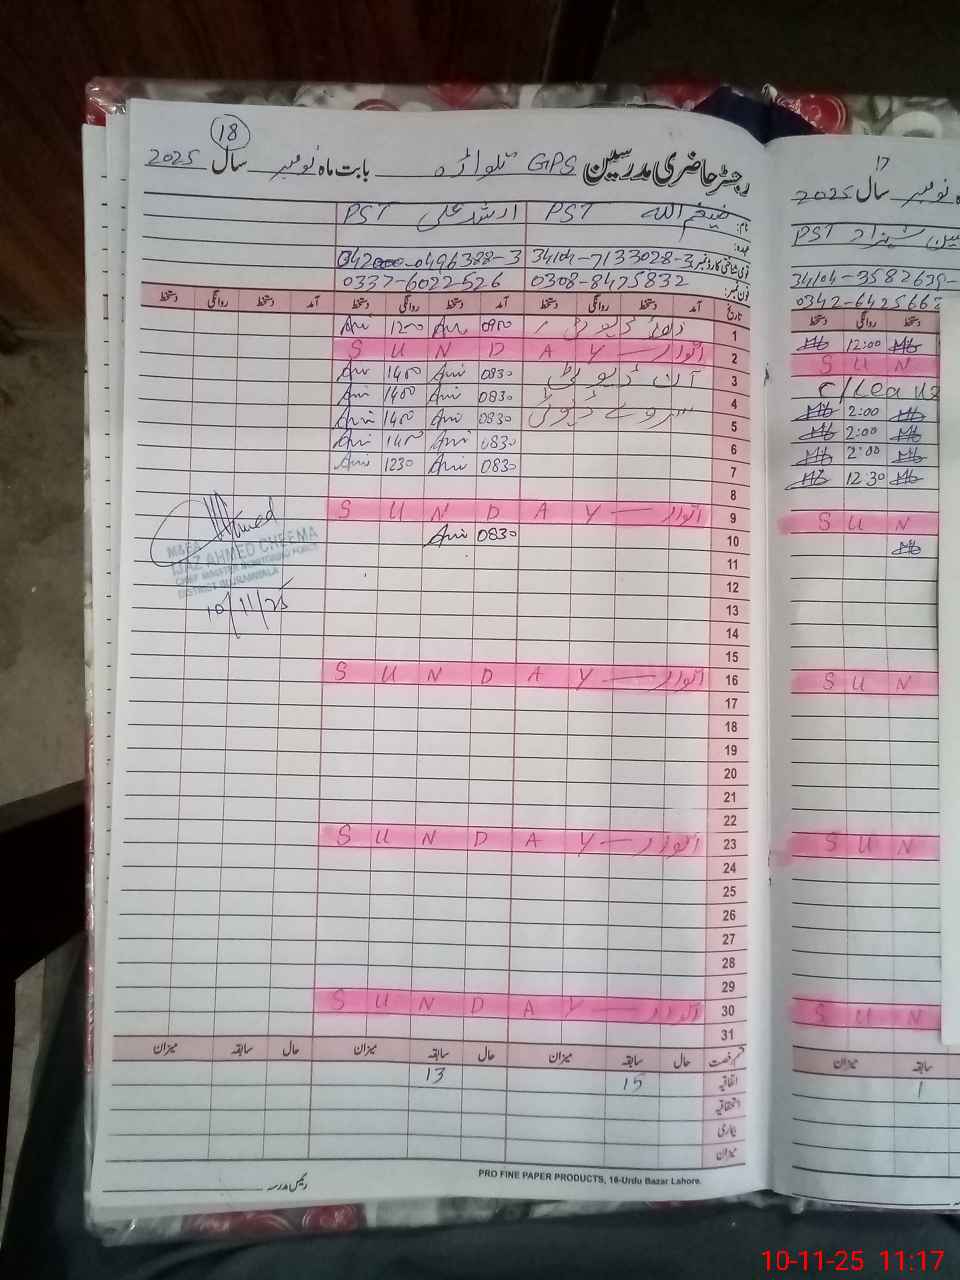 18
رجسٹر حاضری مدرسین GPS تلواڑہ بابت ماہ نومبر سال 2025
نام: ضیغم اللہ PST ارشد علی PST
عہدہ:
قومی شناختی کارڈ نمبر: 34104-7133028-3
فون نمبر: 0308-8475832 0337-6022526
تاریخ آمد دستخط روانگی دستخط آمد دستخط روانگی دستخط آمد دستخط روانگی دستخط
1 ڈیوٹی 0900 1200
2 اتوار SUNDAY
3 ڈیوٹی 0830 1400
4 0830 1400
5 سروے ڈیوٹی 0830 1400
6 0830 1400
7 0830 1230
8
9 اتوار SUNDAY
10 0830
11
12
13
14
15
16 اتوار SUNDAY
17
18
19
20
21
22
23 اتوار SUNDAY
24
25
26
27
28
29
30 اتوار SUNDAY
31
قسم رخصت حال سابقہ میزان حال سابقہ میزان حال سابقہ میزان
اتفاقیہ 15 13
استحقاقیہ
بیماری
میزان
رئیس مدرسہ
PRO FINE PAPER PRODUCTS, 16-Urdu Bazar Lahore.
Ahmed
M&EA
IJAZ AHMED CHEEMA
CHIEF MINISTER MONITORING FORCE
DISTRICT GUJRANWALA
10/11/25
17
نومبر سال 2025
PST
34104-3582639-
0342-6425663
دستخط روانگی دستخط
12:00
SUN
C/Leave
2:00
2:00
2:00
12:30
SUN
SUN
SUN
SUN
سابقہ میزان
1
10-11-25 11:17